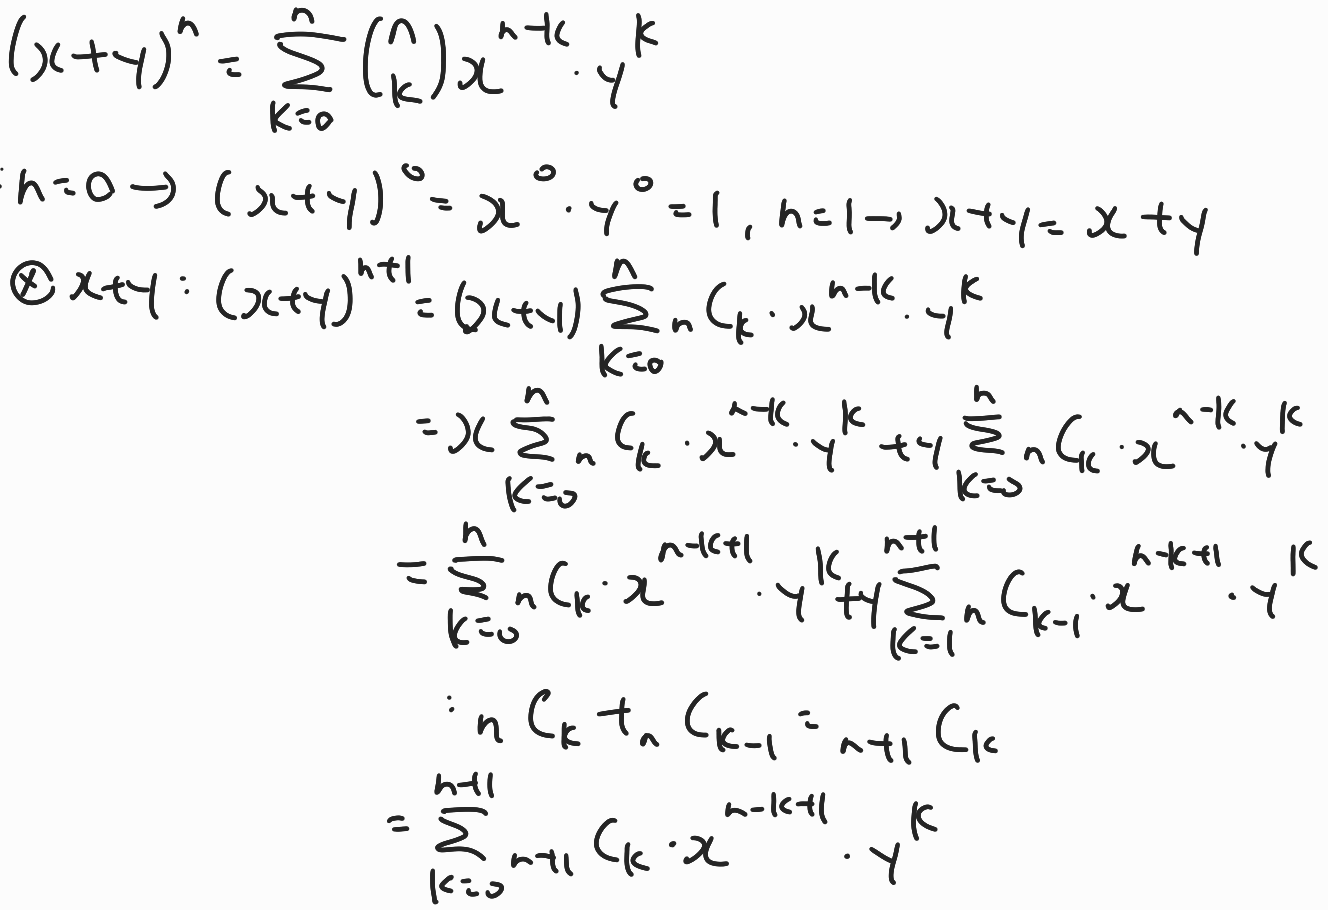 (x+y)^n = \sum_{k=0}^{n} \binom{n}{k} x^{n-k} · y^k
: n=0 → (x+y)^0 = x^0 · y^0 = 1, n=1 → x+y = x+y
⊗ x+y : (x+y)^{n+1} = (x+y) \sum_{k=0}^{n} {}_nC_k · x^{n-k} · y^k
= x \sum_{k=0}^{n} {}_nC_k · x^{n-k} · y^k + y \sum_{k=0}^{n} {}_nC_k · x^{n-k} · y^k
= \sum_{k=0}^{n} {}_nC_k · x^{n-k+1} · y^k + y \sum_{k=1}^{n+1} {}_nC_{k-1} · x^{n-k+1} · y^k
: {}_nC_k + {}_nC_{k-1} = {}_{n+1}C_k
= \sum_{k=0}^{n+1} {}_{n+1}C_k · x^{n-k+1} · y^k